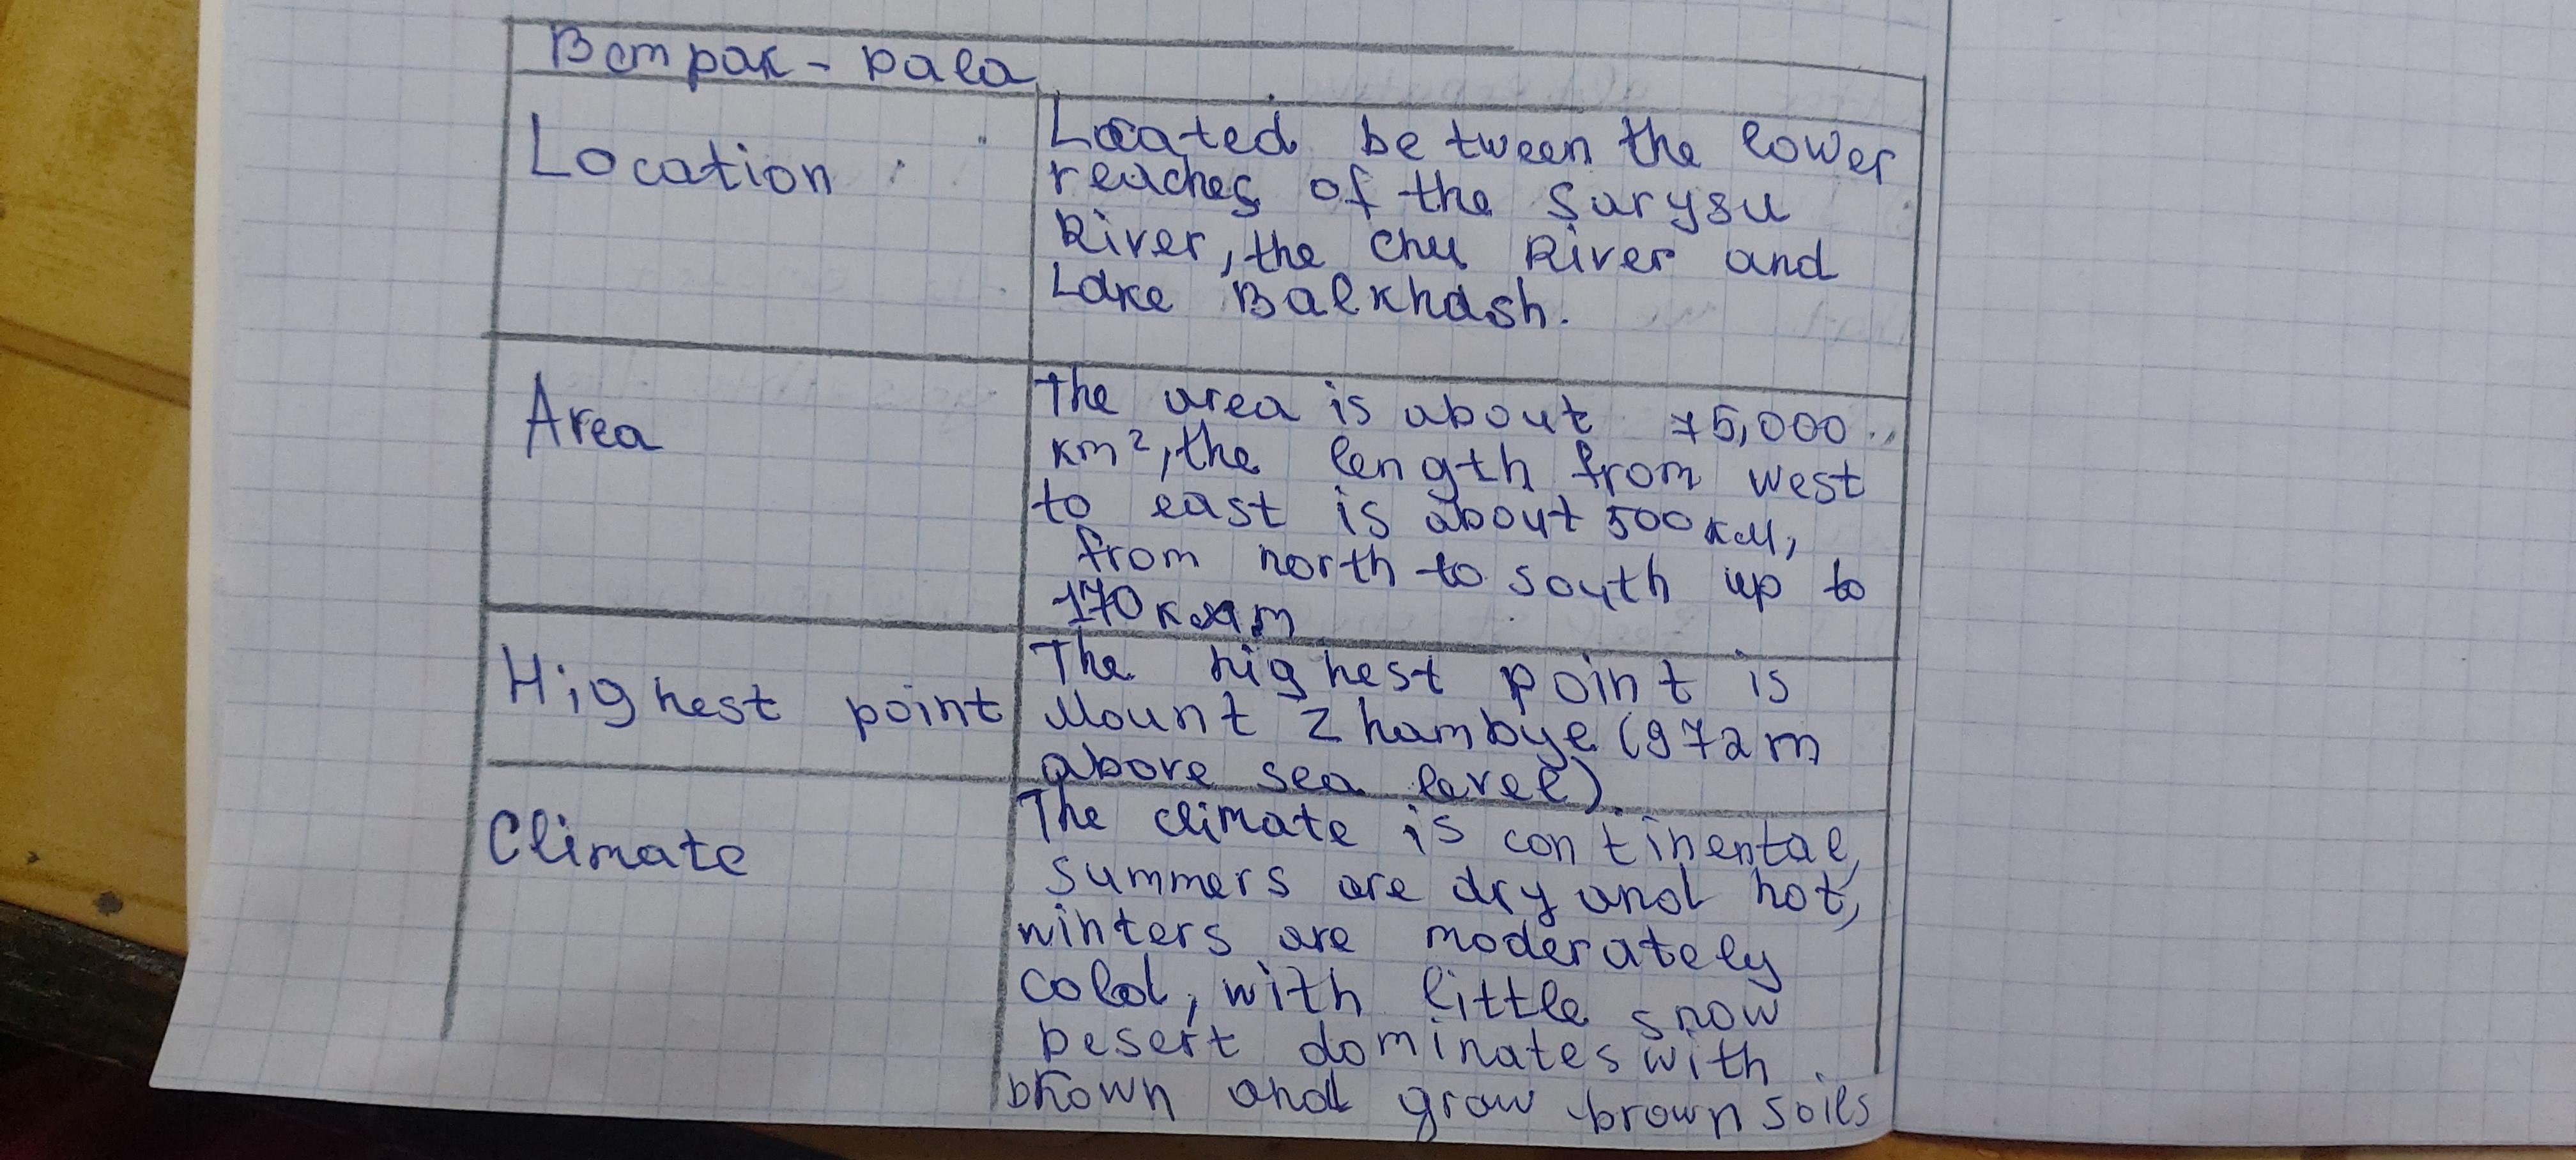 Betpak-Dala
Location
Located between the lower
reaches of the Sarysu
River, the Chu River and
Lake Balkhash.
Area
The area is about 75,000
km², the length from west
to east is about 500 км,
from north to south up to
170 km
Highest point
The highest point is
Mount Zhambye (972 m
above sea level).
Climate
The climate is continental,
summers are dry and hot,
winters are moderately
cold, with little snow
Desert dominates with
brown and grow-brown soils